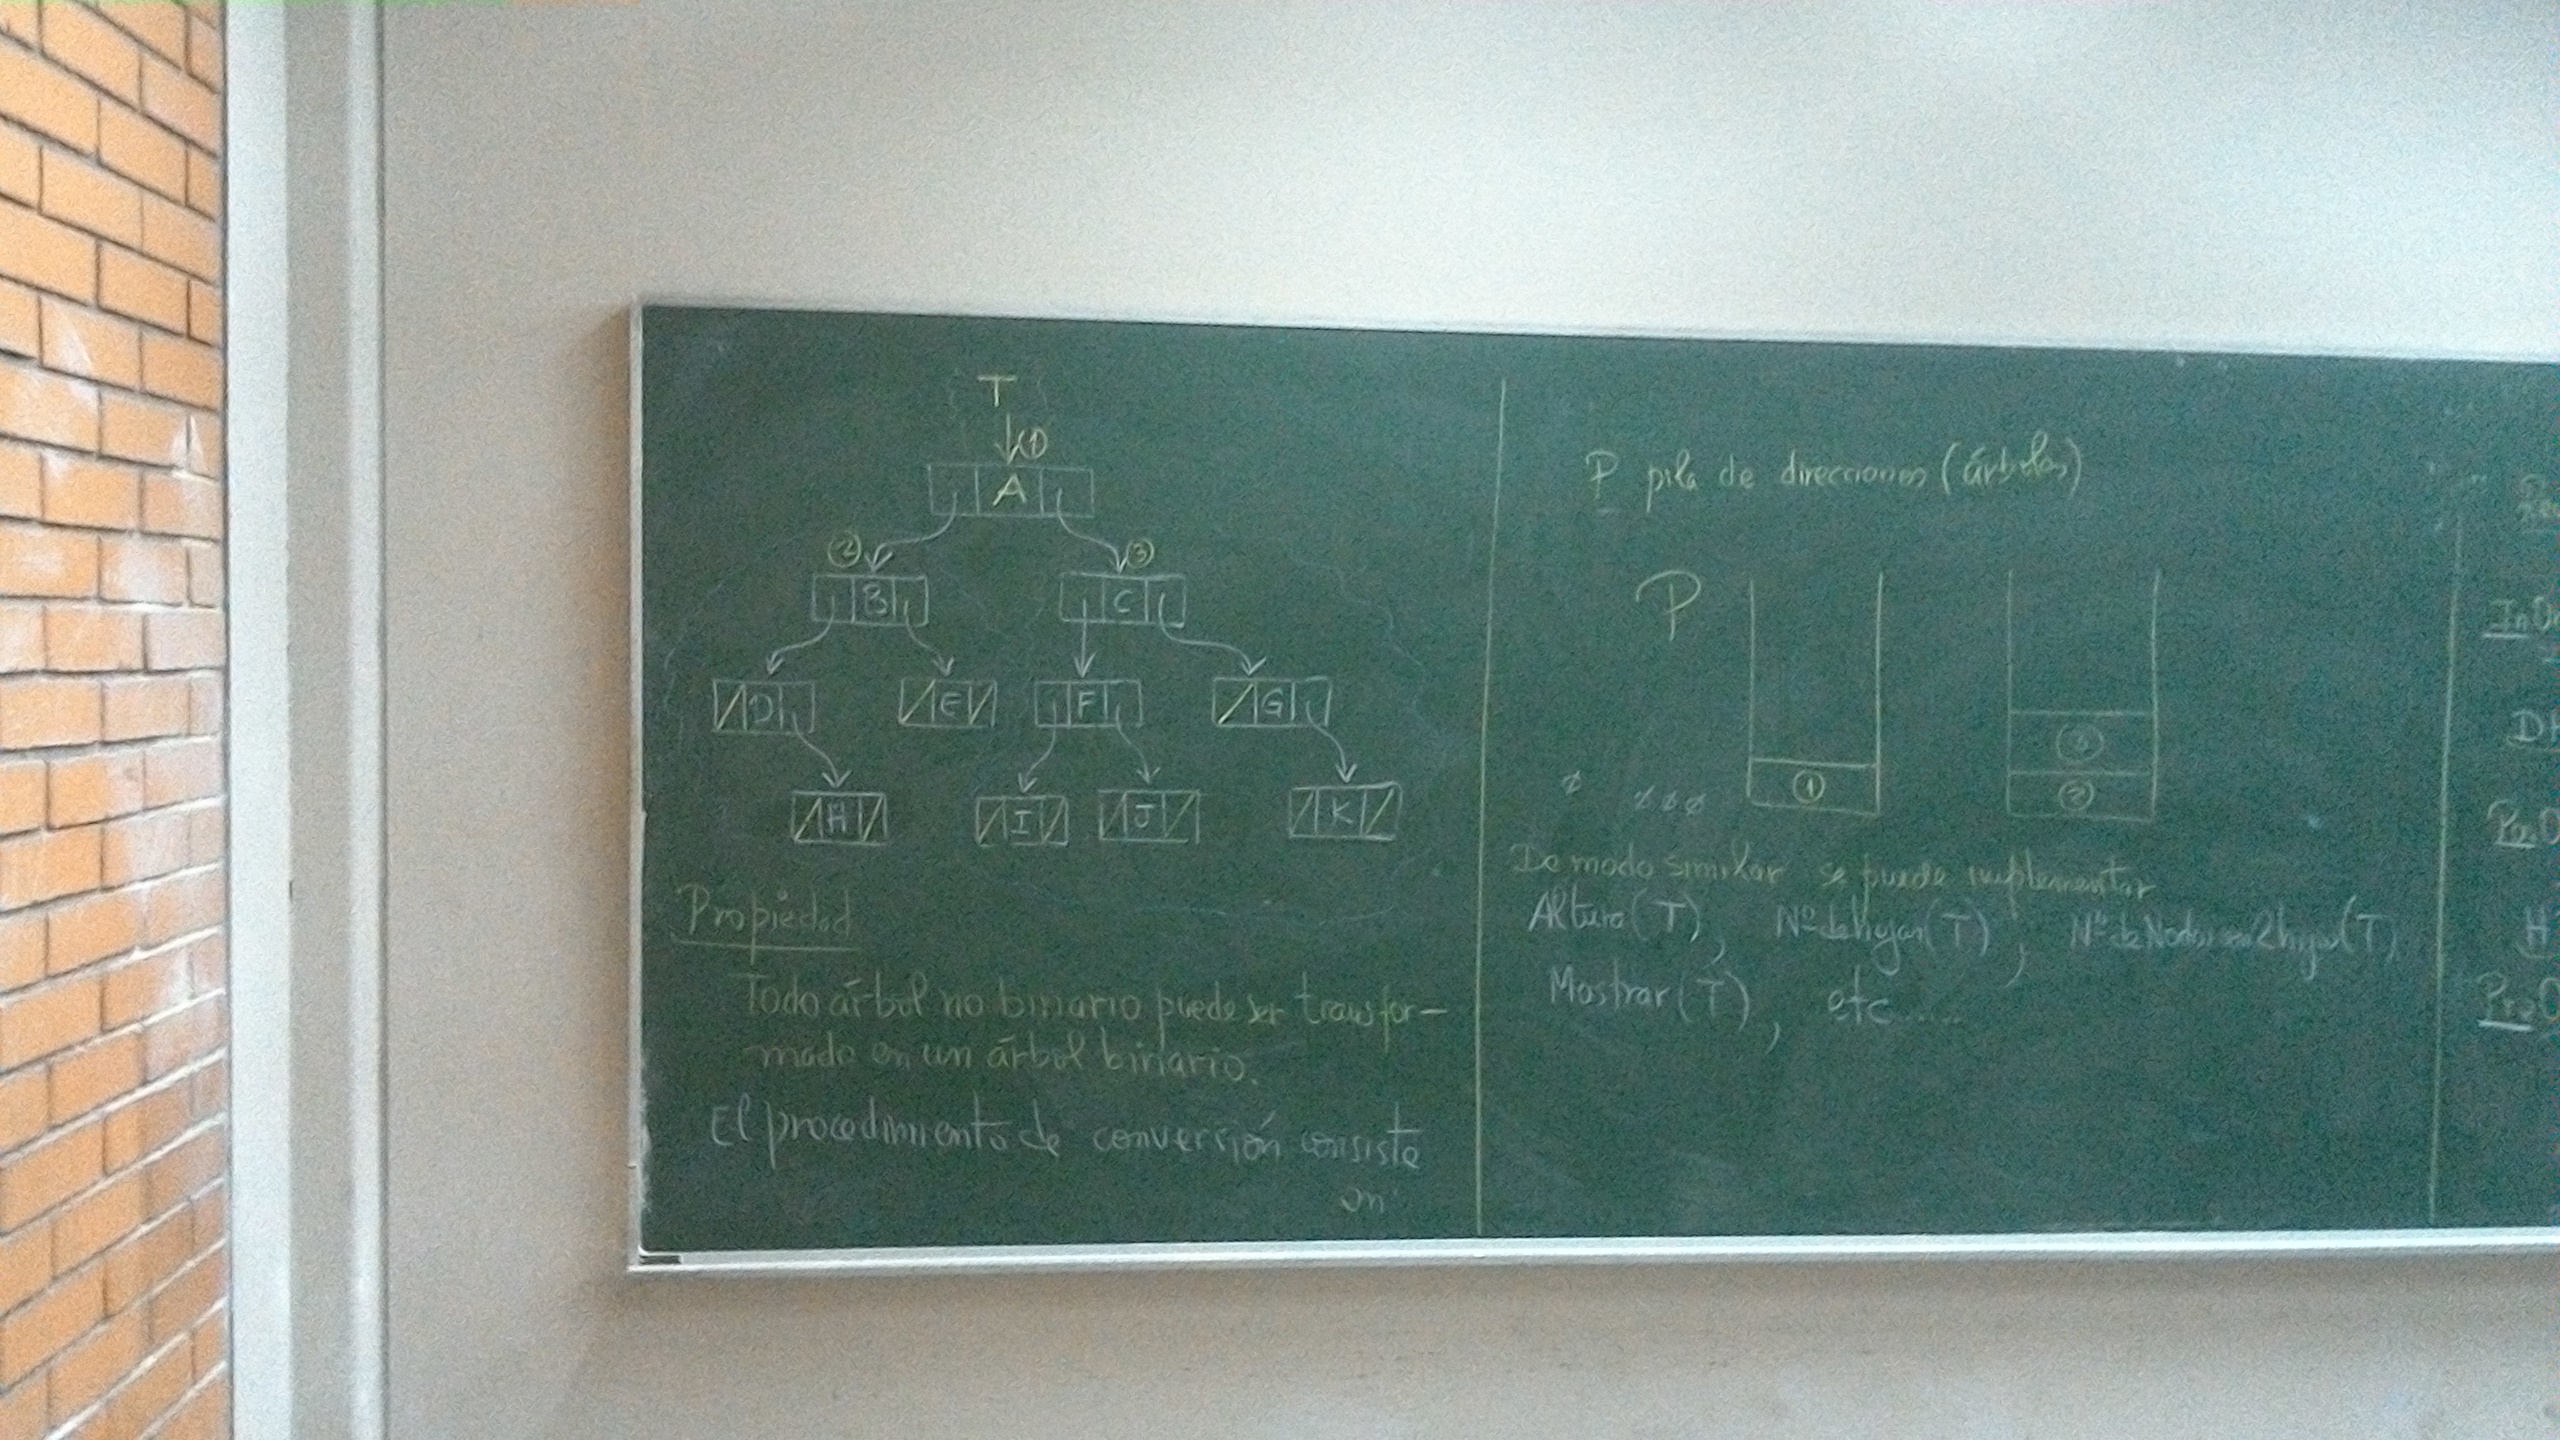 T
(1)
A
② ③
B C
D E F G
H I J K
Propiedad
Todo árbol no binario puede ser transfor-
mado en un árbol binario.
El procedimiento de conversión consiste
en
P pila de direcciones (árboles)
P
①
②
De modo similar se puede implementar
Altura(T), Nº de hojas(T), Nº de Nodos con 2 hijos(T)
Mostrar(T), etc.....
InOr
DH
PosO
H
PreO